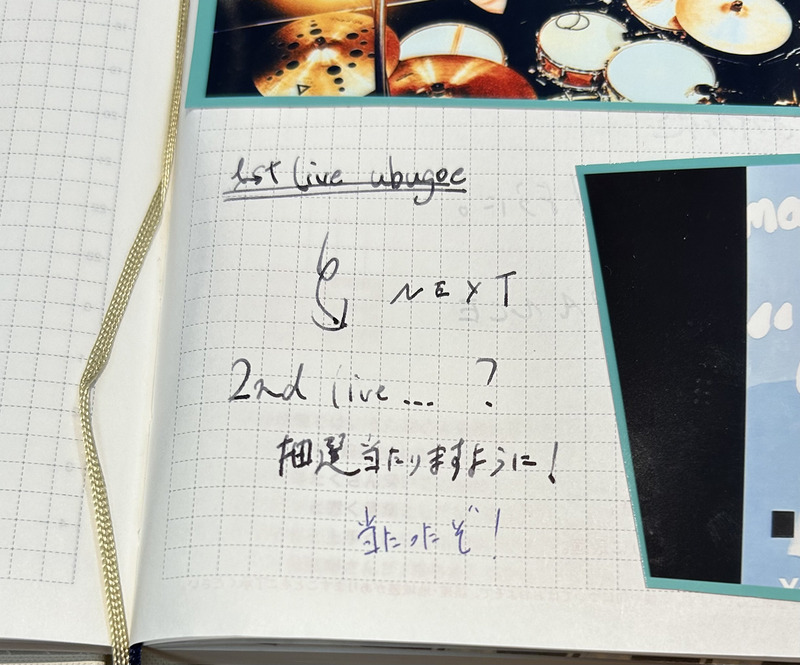 1st live ubugoe
NEXT
2nd live... ?
抽選当たりますように!
当たったぞ!
mo